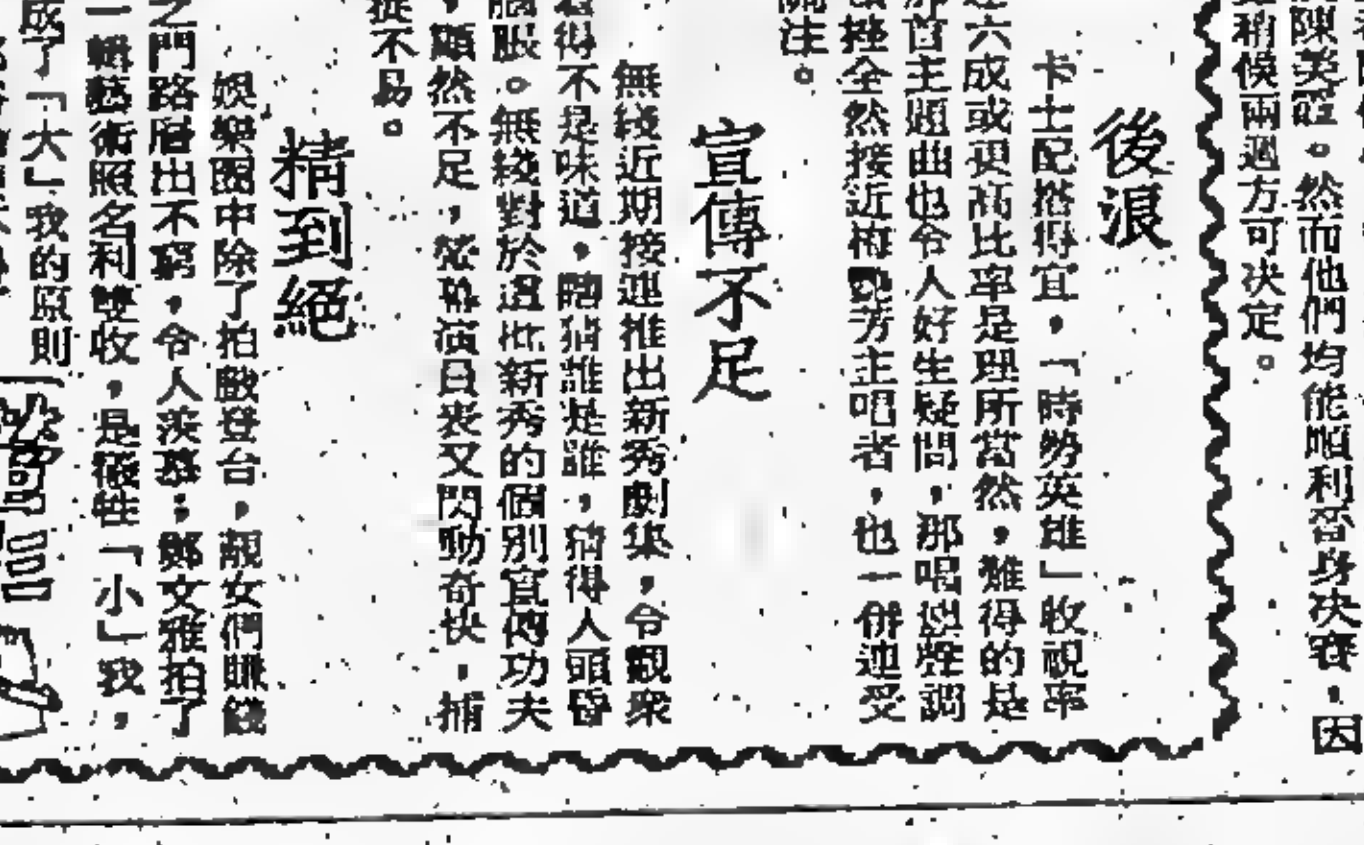 陳美齡。然而他們均能順利晉身決賽，因
稍候兩週方可決定。
後浪
卡士配搭得宜，「時勢英雄」收視率
六成或更高比率是理所當然，難得的是
首主題曲也令人好生疑問，那唱聲調
全然接近梅艷芳主唱者，也一併連受
關注。
宣傳不足
無綫近期接連推出新秀劇集，令觀衆
得不是味道，瞎猜誰是誰，猜得人頭昏
腦脹。無綫對於這批新秀的個別宣傳功夫
，顯然不足，熒幕演員表又閃動奇快，捕
捉不易。
精到絕
娛樂圈中除了拍戲登台，靚女們賺錢
之門路層出不窮，令人羨慕；鄭文雅拍了
一輯藝術照名利雙收，是犧牲「小」我，
成了「大」我的原則